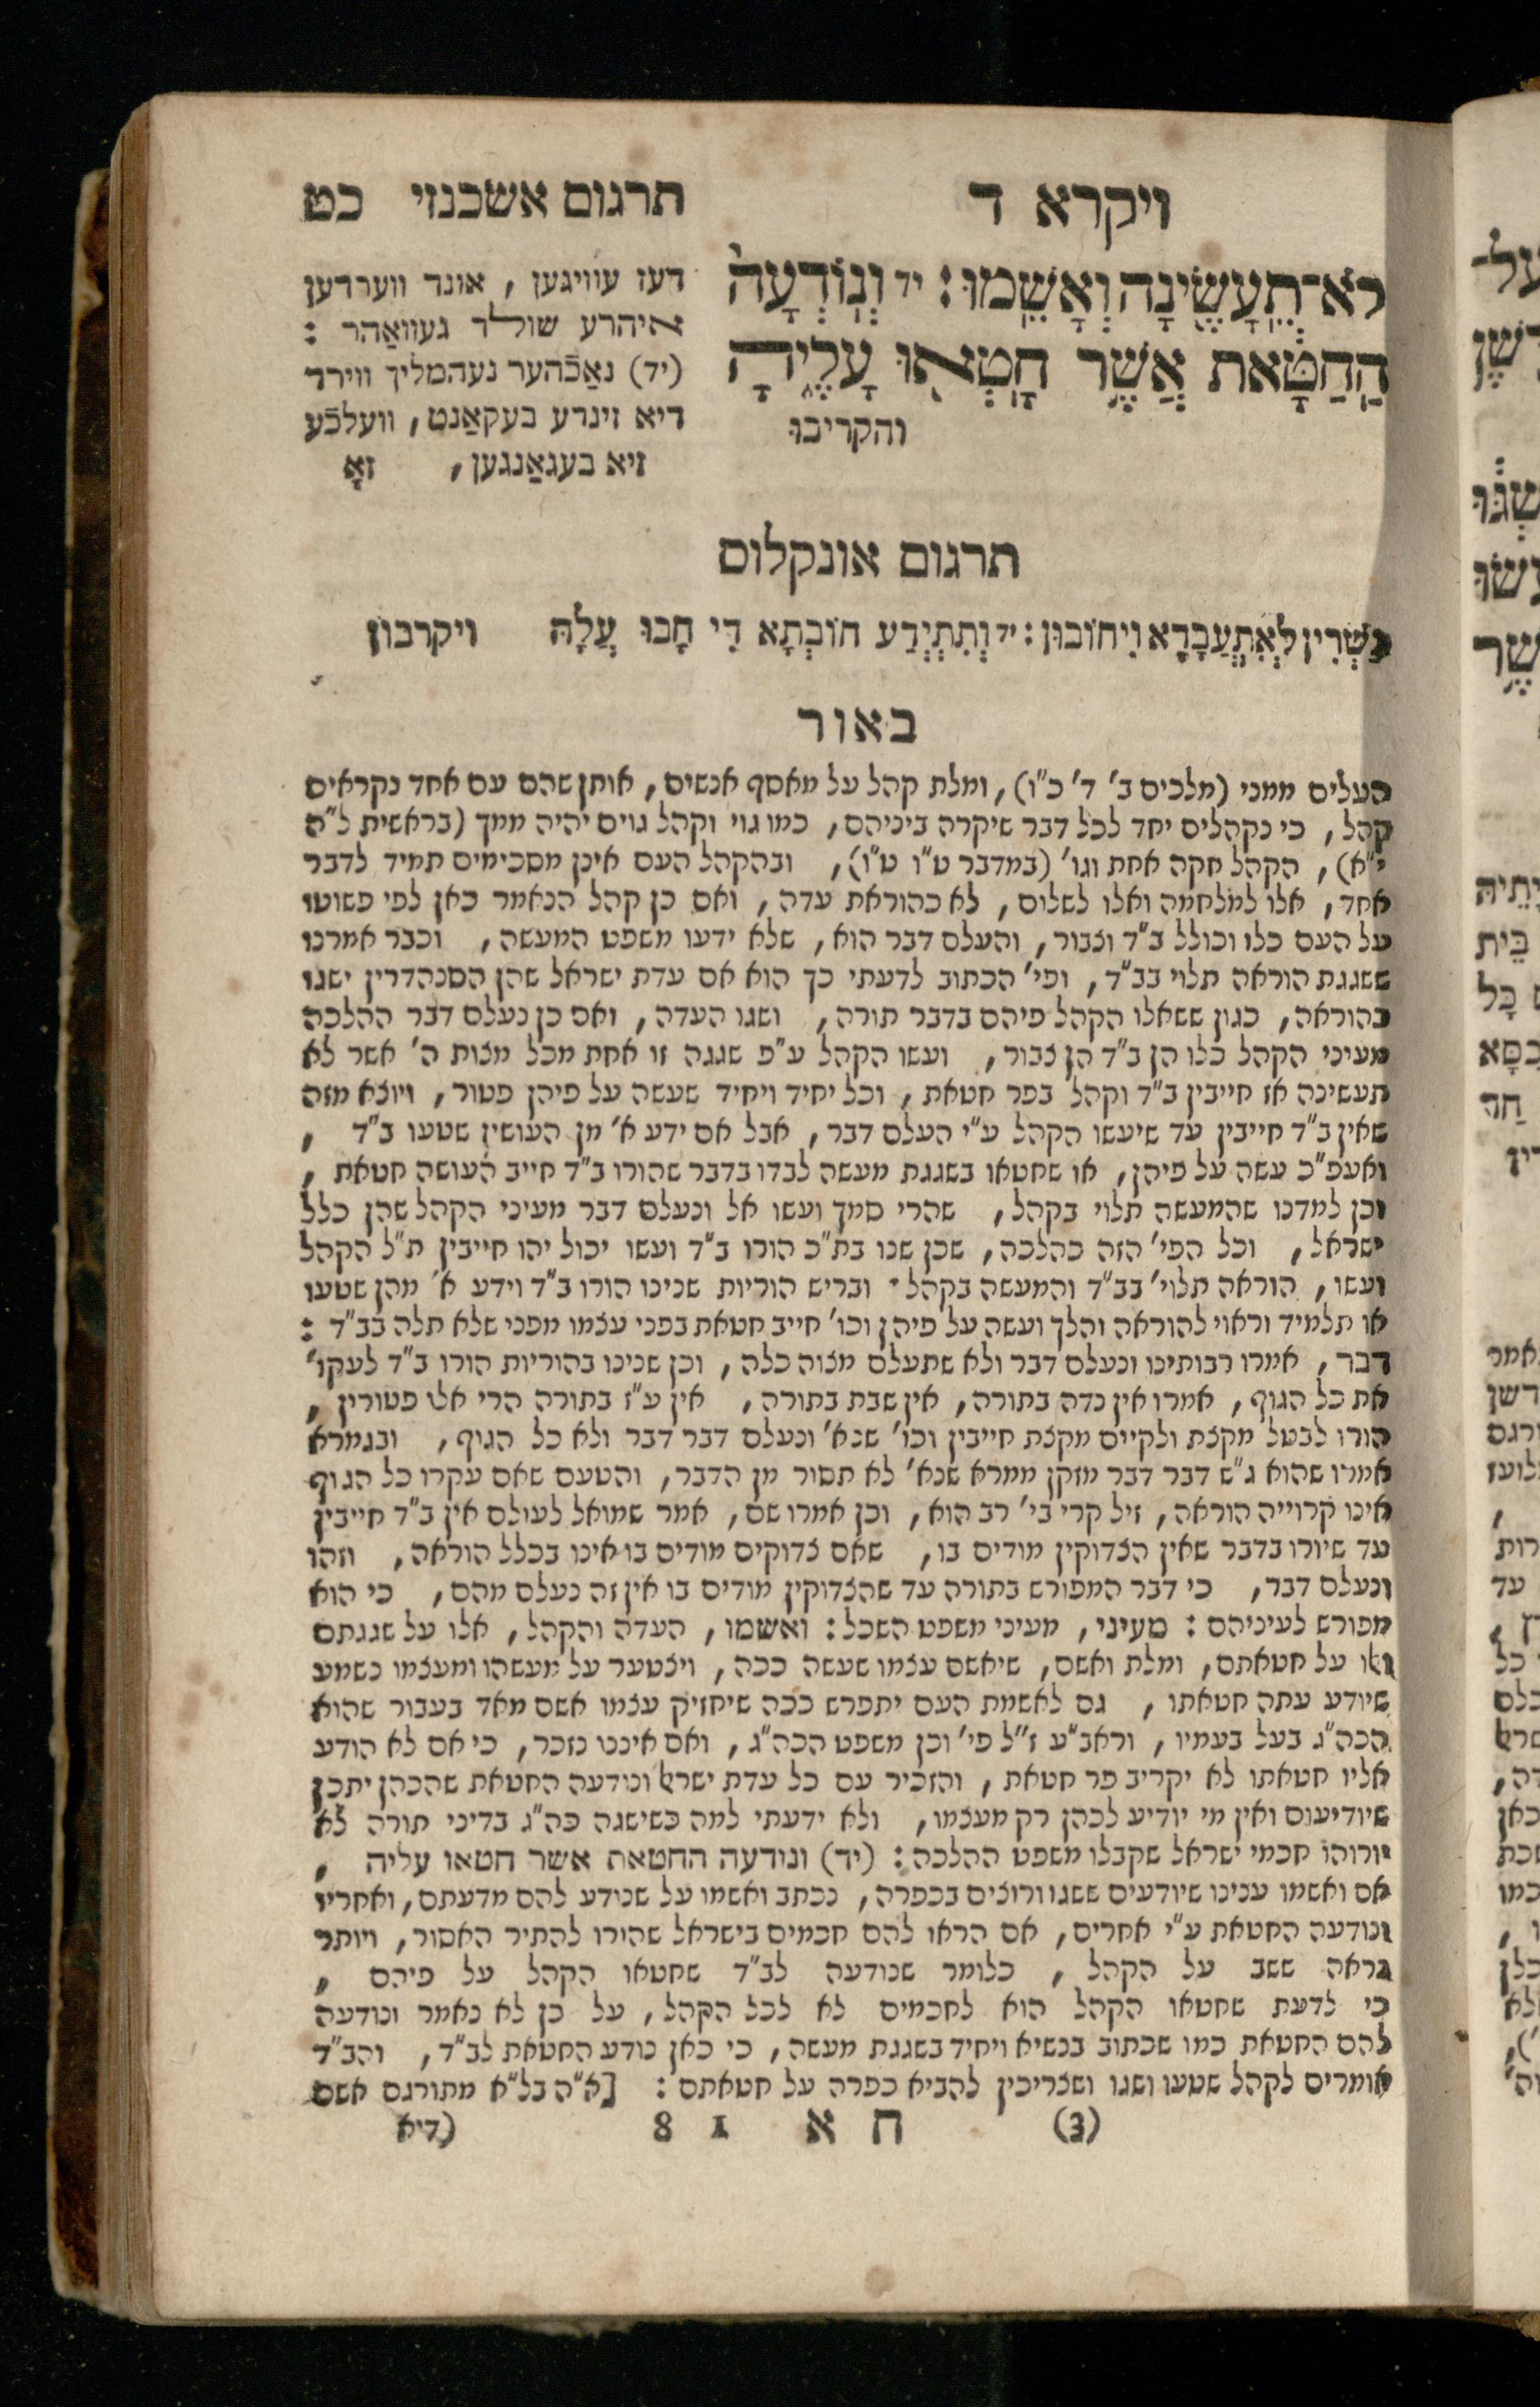 ויקרא ד
תרגום אשכנזי כט
לֹא־תֵעָשֶׂינָה וְאָשֵׁמוּ: יד וְנוֹדְעָה
הַחַטָּאת אֲשֶׁר חָטְאוּ עָלֶיהָ
והקריבו
דעז עוויגען, אונד ווערדען
איהרע שולד געוואַהר:
(יד) נאַכֿהער נעהמליך ווירד
דיא זינדע בעקאַנט, וועלכֿע
זיא בעגאַנגען, זאָ
תרגום אונקלוס
כַשְׁרִין לְאִתְעֲבָדָא וִיחוֹבוּן: יד וְתִתְיְדַע חוֹבְתָא דִּי חָבוּ עֲלָהּ ויקרבון
באור
העלים ממני (מלכים ב׳ ד׳ כ״ז), ומלת קהל על מאסף אנשים, אותן שהם עם אחד נקראים
קהל, כי נקהלים יחד לכל דבר שיקרה ביניהם, כמו גוי וקהל גוים יהיה ממך (בראשית ל״ה
י״א), הקהל חקה אחת וגו׳ (במדבר ט״ו ט״ו), ובהקהל העם אינן מסכימים תמיד לדבר
אחד, אלו למלחמה ואלו לשלום, לא כהוראת עדה, ואם כן קהל הנאמר כאן לפי פשוטו
על העם כלו וכולל ב״ד וצבור, והעלם דבר הוא, שלא ידעו משפט המעשה, וכבר אמרנו
ששגגת הוראה תלוי בב״ד, ופי׳ הכתוב לדעתי כך הוא אם עדת ישראל שהן הסנהדרין ישגו
בהוראה, כגון ששאלו הקהל פיהם בדבר תורה, ושגו העדה, ואם כן נעלם דבר ההלכה
מעיני הקהל כלו הן ב״ד הן צבור, ועשו הקהל ע״פ שגגה זו אחת מכל מצות ה׳ אשר לא
תעשינה אז חייבין ב״ד וקהל בפר חטאת, וכל יחיד ויחיד שעשה על פיהן פטור, ויוצא מזה
שאין ב״ד חייבין עד שיעשו הקהל ע״י העלם דבר, אבל אם ידע א׳ מן העושין שטעו ב״ד,
ואעפ״כ עשה על פיהן, או שחטאו בשגגת מעשה לבדו בדבר שהורו ב״ד חייב העושה חטאת,
וכן למדנו שהמעשה תלוי בקהל, שהרי סמך ועשו אל ונעלם דבר מעיני הקהל שהן כלל
ישראל, וכל הפי׳ הזה כהלכה, שכן שנו בת״כ הורו ב״ד ועשו יכול יהו חייבין ת״ל הקהל
ועשו, הוראה תלוי׳ בב״ד והמעשה בקהל· ובריש הוריות שנינו הורו ב״ד וידע א׳ מהן שטעו
או תלמיד וראוי להוראה והלך ועשה על פיהן וכו׳ חייב חטאת בפני עצמו מפני שלא תלה בב״ד:
דבר, אמרו רבותינו ונעלם דבר ולא שתעלם מצוה כלה, וכן שנינו בהוריות הורו ב״ד לעקו׳
את כל הגוף, אמרו אין נדה בתורה, אין שבת בתורה, אין ע״ז בתורה הרי אלו פטורין,
הורו לבטל מקצת ולקיים מקצת חייבין וכו׳ שנא׳ ונעלם דבר דבר ולא כל הגוף, ובגמרא
אמרו שהוא ג״ש דבר דבר מזקן ממרא שנא׳ לא תסור מן הדבר, והטעם שאם עקרו כל הגוף
אינו קרוייה הוראה, זיל קרי בי׳ רב הוא, וכן אמרו שם, אמר שמואל לעולם אין ב״ד חייבין
עד שיורו בדבר שאין הצדוקין מודים בו, שאם צדוקים מודים בו אינו בכלל הוראה, וזהו
ונעלם דבר, כי דבר המפורש בתורה עד שהצדוקין מודים בו אין זה נעלם מהם, כי הוא
מפורש לעיניהם: מעיני, מעיני משפט השכל: ואשמו, העדה והקהל, אלו על שגגתם
ואו על חטאתם, ומלת ואשם, שיאשם עצמו שעשה ככה, ויצטער על מעשהו ומעצמו כשמע
שיודע עתה חטאתו, גם לאשמת העם יתפרש ככה שיחזיק עצמו אשם מאד בעבור שהוא
הכה״ג בעל בעמיו, וראב״ע ז״ל פי׳ וכן משפט הכה״ג, ואם איננו נזכר, כי אם לא הודע
אליו חטאתו לא יקריב פר חטאת, והזכיר עם כל עדת ישראל ונודעה החטאת שהכהן יתכן
שיודיעום ואין מי יודיע לכהן רק מעצמו, ולא ידעתי למה כשישגה כה״ג בדיני תורה לא
יורוהו חכמי ישראל שקבלו משפט ההלכה: (יד) ונודעה החטאת אשר חטאו עליה,
אם ואשמו ענינו שיודעים ששגו ורוצים בכפרה, נכתב ואשמו על שנודע להם מדעתם, ואחריו
ונודעה החטאת ע״י אחרים, אם הראו להם חכמים בישראל שהורו להתיר האסור, ויותר
נראה ששב על הקהל, כלומר שנודעה לב״ד שחטאו הקהל על פיהם,
כי לדעת שחטאו הקהל הוא לחכמים לא לכל הקהל, על כן לא נאמר ונודעה
להם החטאת כמו שכתוב בנשיא ויחיד בשגגת מעשה, כי כאן נודע החטאת לב״ד, והב״ד
אומרים לקהל שטעו ושגו ושצריכין להביא כפרה על חטאתם: [א״ה בל״א מתורגם אשם
(3) ח א 1 8 (דיא